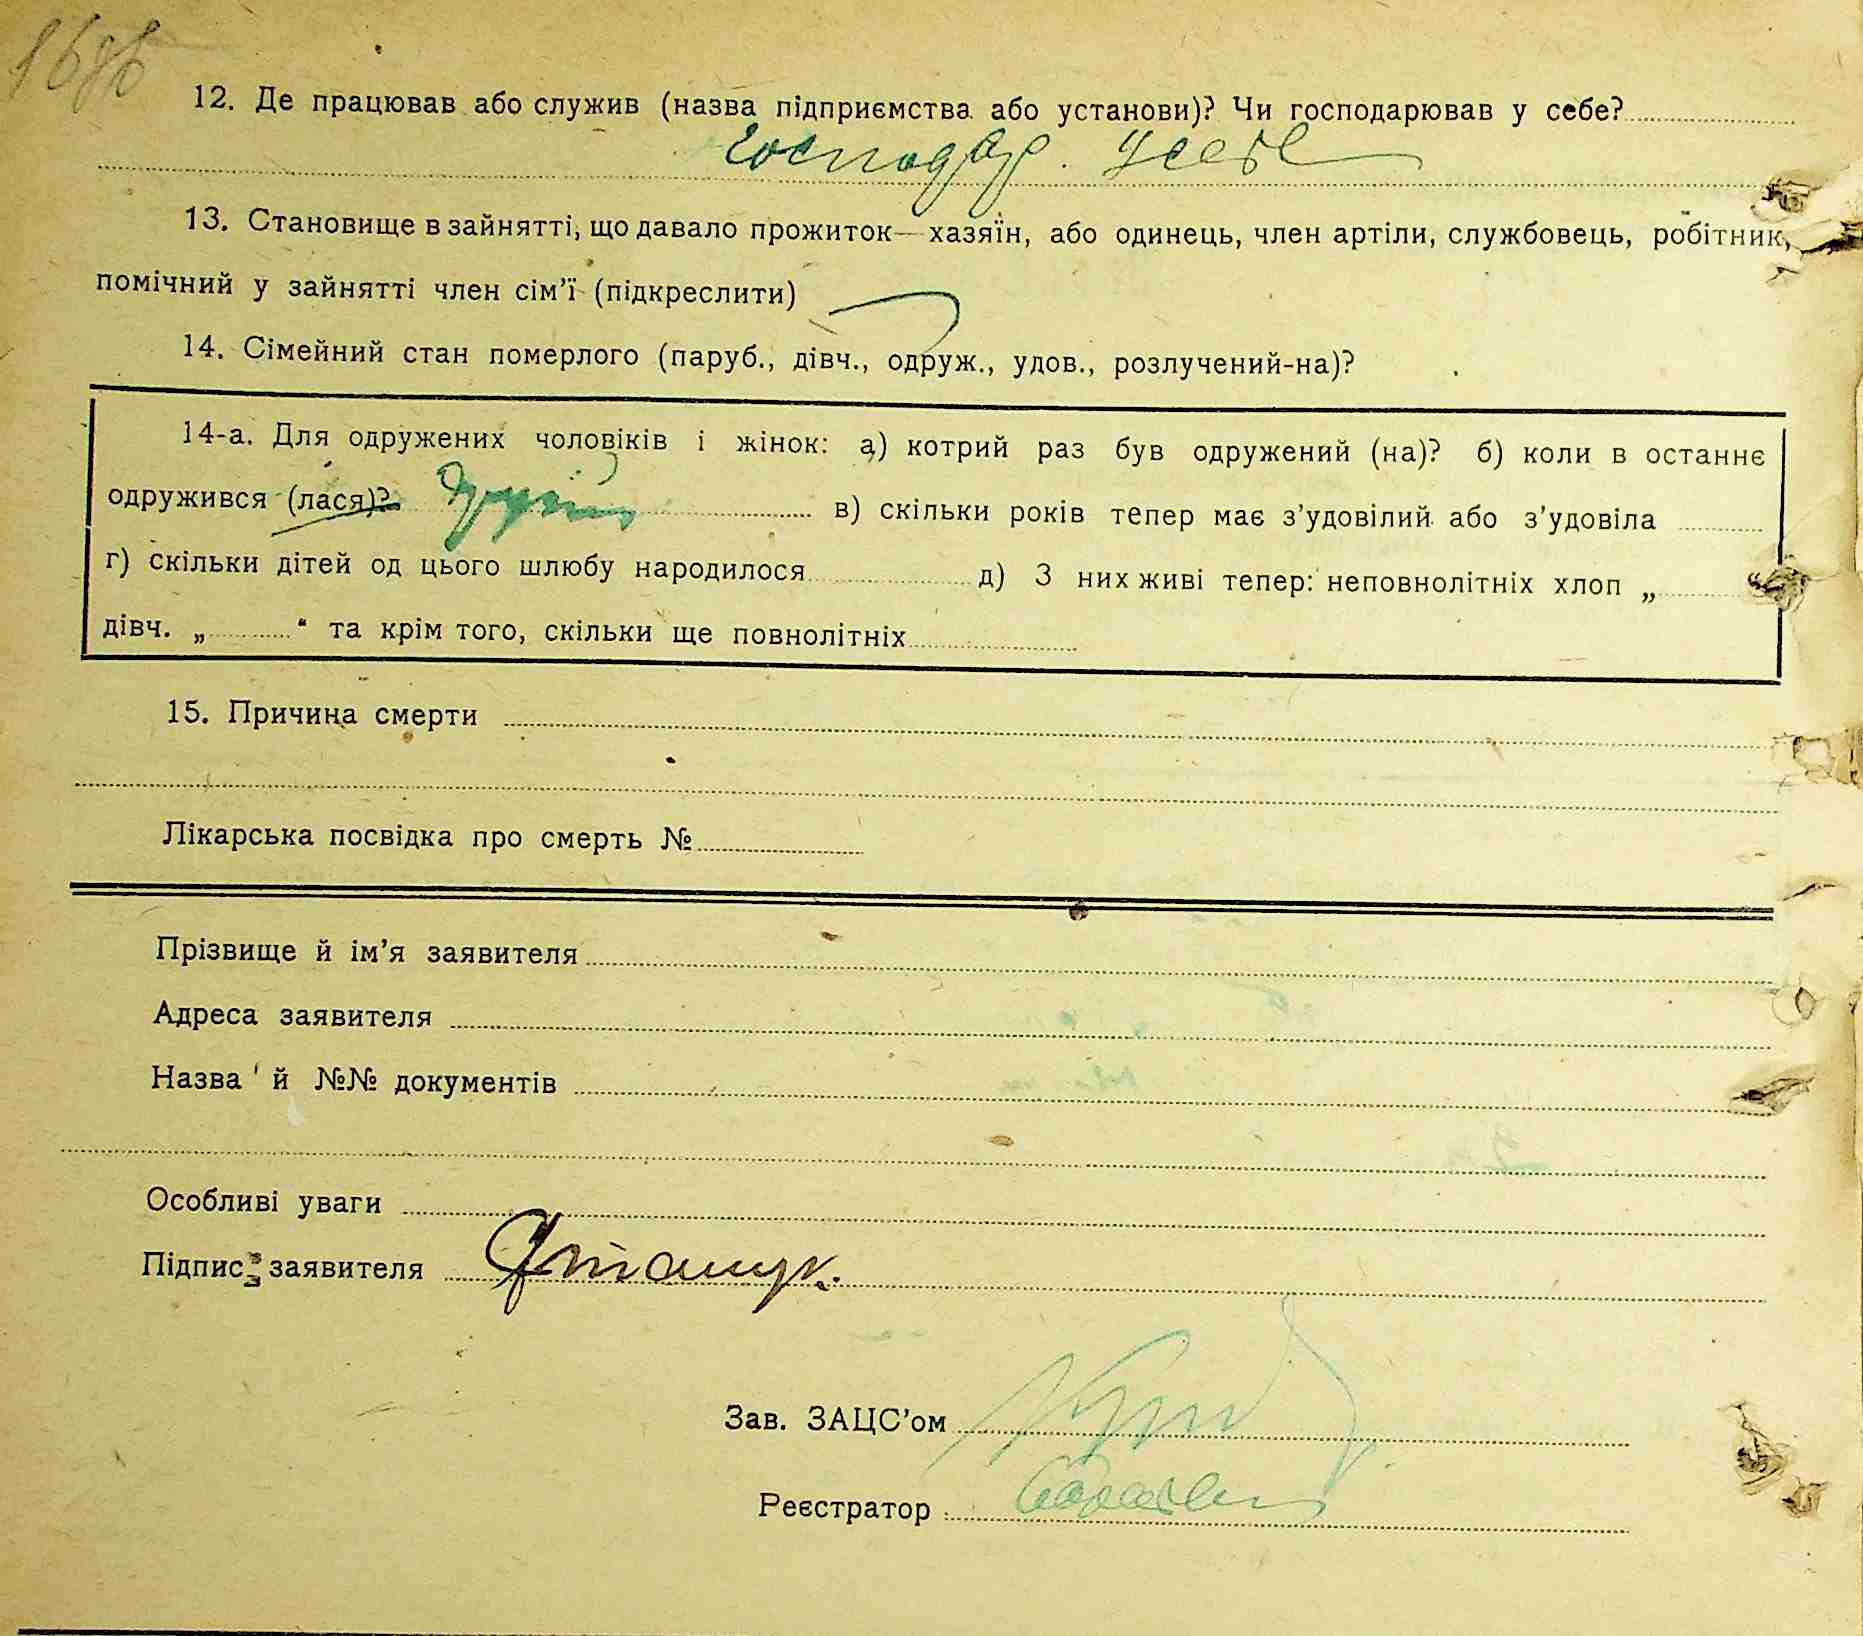 12. Де працював або служив (назва підприємства або установи)? Чи господарював у себе?
господар. у себе
13. Становище в зайнятті, що давало прожиток—хазяїн, або одинець, член артіли, службовець, робітник,
помічний у зайнятті член сім'ї (підкреслити)
14. Сімейний стан померлого (паруб., дівч., одруж., удов., розлучений-на)?
14-а. Для одружених чоловіків і жінок: а) котрий раз був одружений (на)? б) коли в останнє
одружився (лася)? в) скільки років тепер має з'удовілий або з'удовіла
г) скільки дітей од цього шлюбу народилося д) З них живі тепер: неповнолітніх хлоп „
дівч. „ “ та крім того, скільки ще повнолітніх
15. Причина смерти
Лікарська посвідка про смерть №
Прізвище й ім'я заявителя
Адреса заявителя
Назва й №№ документів
Особливі уваги
Підпис заявителя
Зав. ЗАЦС'ом
Реєстратор